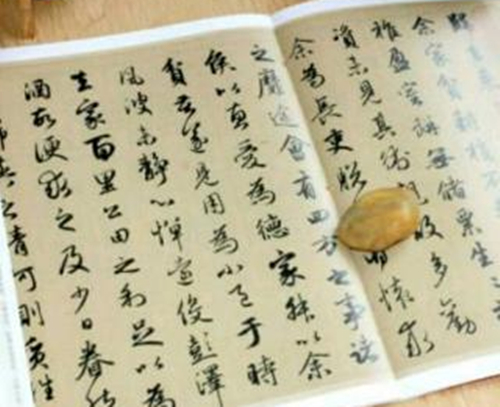 歸去来
余家貧耕植不
稚盈室缾無儲粟生
資未見其術親故多勸
余為長吏脫有懷求
之靡途會有四方之事諸
侯以惠愛為德家叔以余
貧苦遂見用為小邑于時
風波未靜心憚遠役彭澤
去家百里公田之利足以為
酒故便求之及少日眷然
之情何則質性